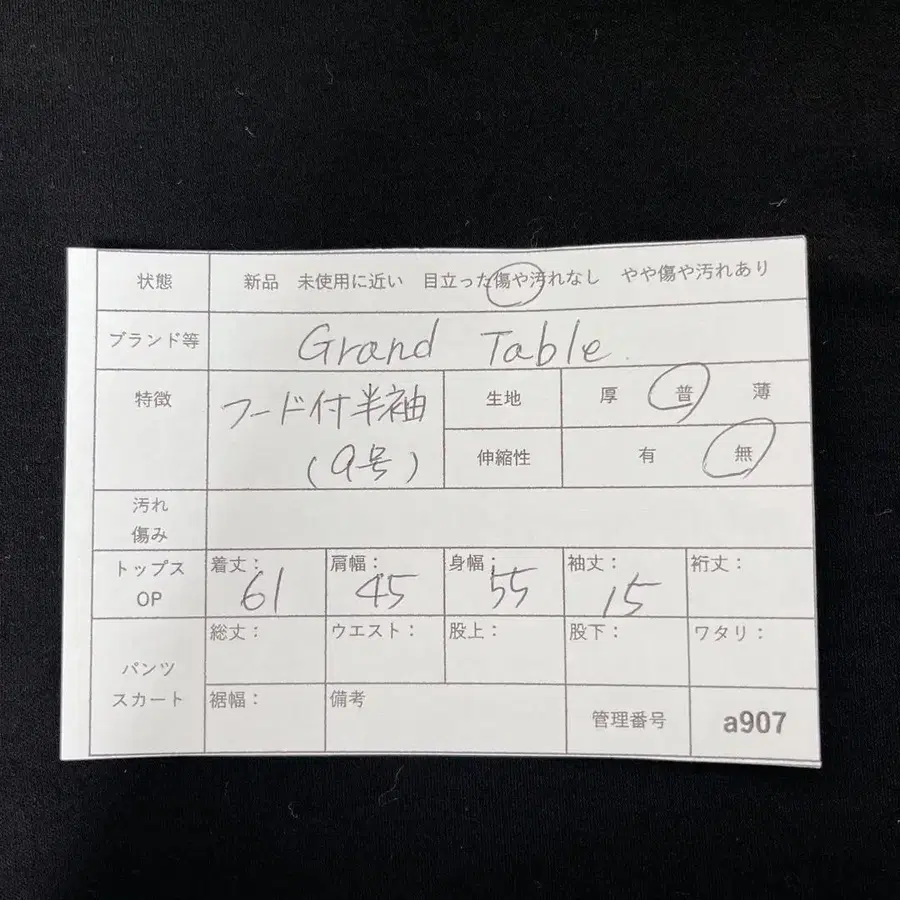 状態 新品 未使用に近い 目立った傷や汚れなし やや傷や汚れあり
ブランド等 Grand Table
特徴 フード付半袖 生地 厚 普 薄
(9号) 伸縮性 有 無
汚れ
傷み
トップス 着丈: 肩幅: 身幅: 袖丈: 裄丈:
OP 61 45 55 15
総丈: ウエスト: 股上: 股下: ワタリ:
パンツ
スカート 裾幅: 備考
管理番号 a907